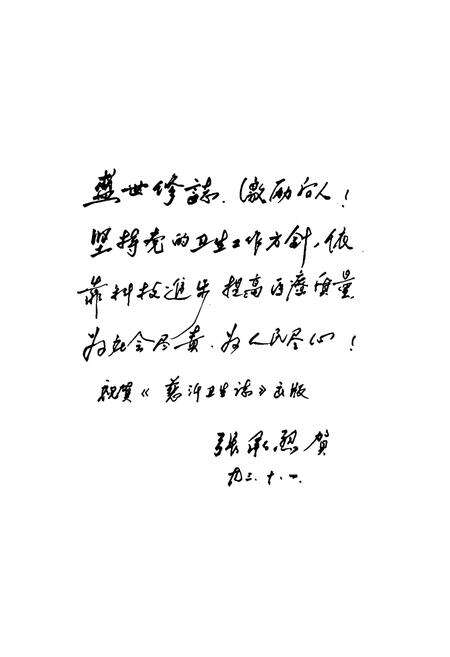 盛世修誌，激励后人！
坚持党的卫生工作方針，依
靠科技進步提高医療质量
为社会尽责，为人民尽心！
祝贺《慈溪卫生志》出版
張承烈 贺
九三.十.一.